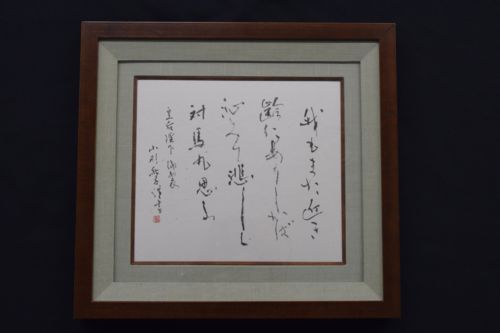 我もまた近き
齢にありしかば
沁みて悲しく
対馬丸思ふ
皇后陛下御歌